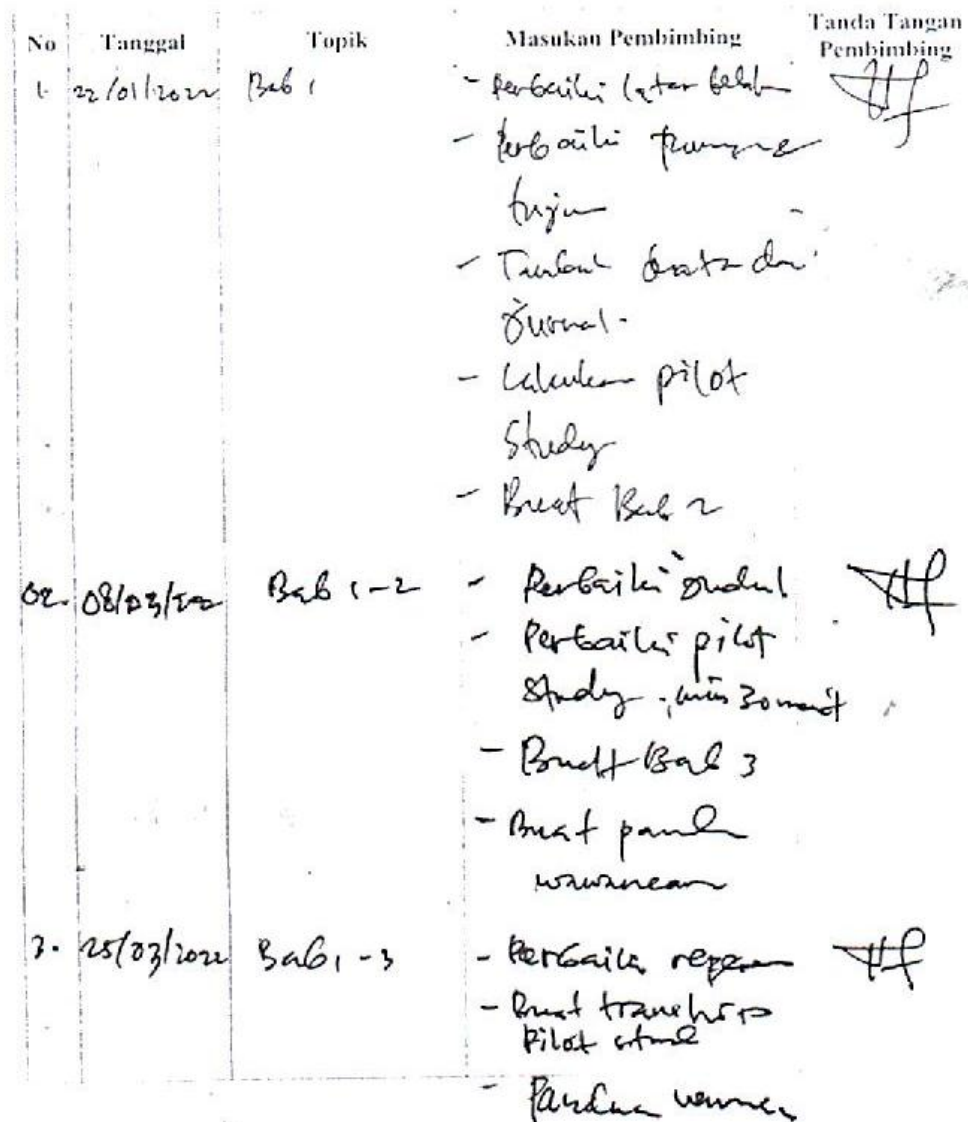 No Tanggal Topik Masukan Pembimbing Tanda Tangan Pembimbing
1. 22/01/2022 Bab 1 - Perbaiki latar
- Perbaiki
- data dari
Jurnal.
- Lakukan pilot
study
- Buat Bab 2
02. 08/03/ Bab 1-2 - Perbaiki Judul
- Perbaiki pilot
study, min 30 menit
- Buat Bab 3
- Buat
wawancara
3. 25/03/2022 Bab 1-3 - Perbaiki
- Buat transkrip
Pilot
-